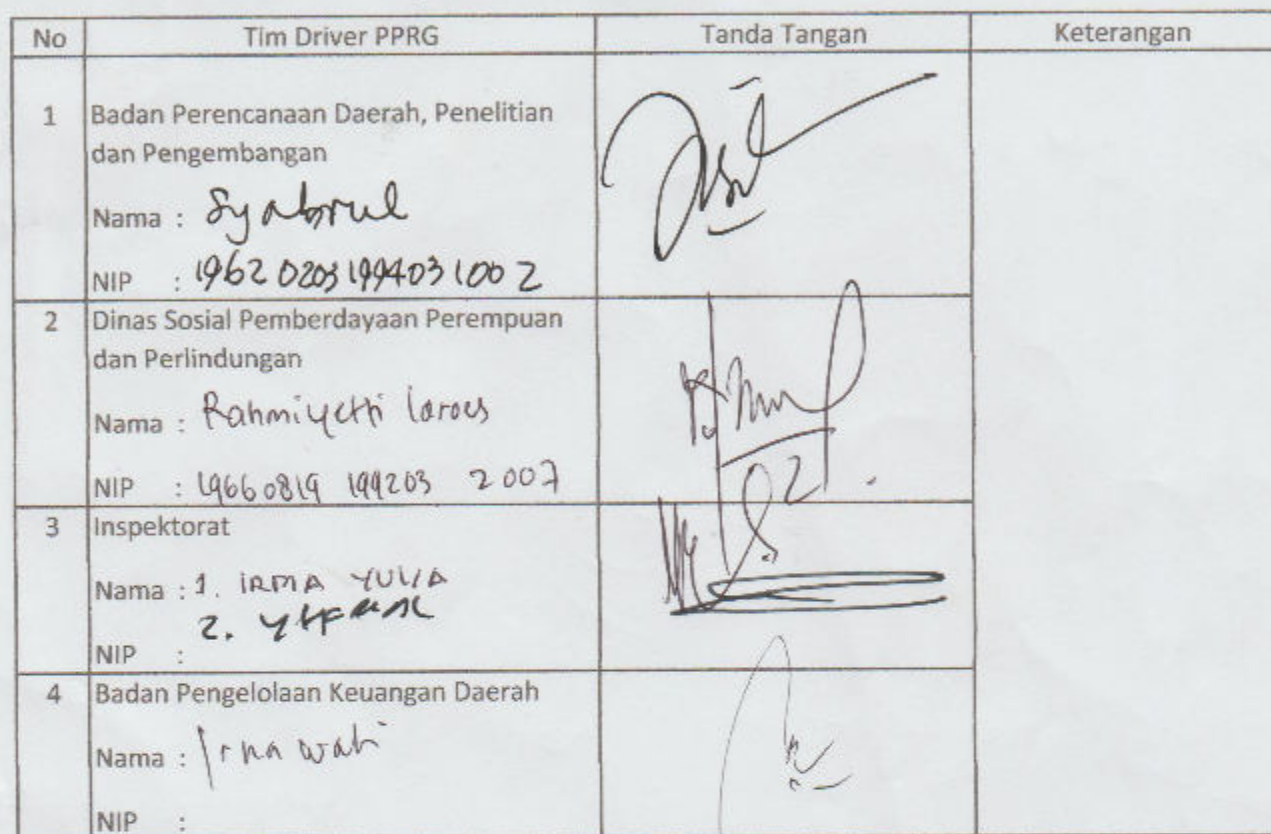 No Tim Driver PPRG Tanda Tangan Keterangan
1 Badan Perencanaan Daerah, Penelitian
dan Pengembangan
Nama : Syabrul
NIP : 19620203 199403 1002
2 Dinas Sosial Pemberdayaan Perempuan
dan Perlindungan
Nama : Rahmiyetti Laroes
NIP : 19660819 199203 2007
3 Inspektorat
Nama : 1. IRMA YULIA
2.
NIP :
4 Badan Pengelolaan Keuangan Daerah
Nama : Irnawati
NIP :